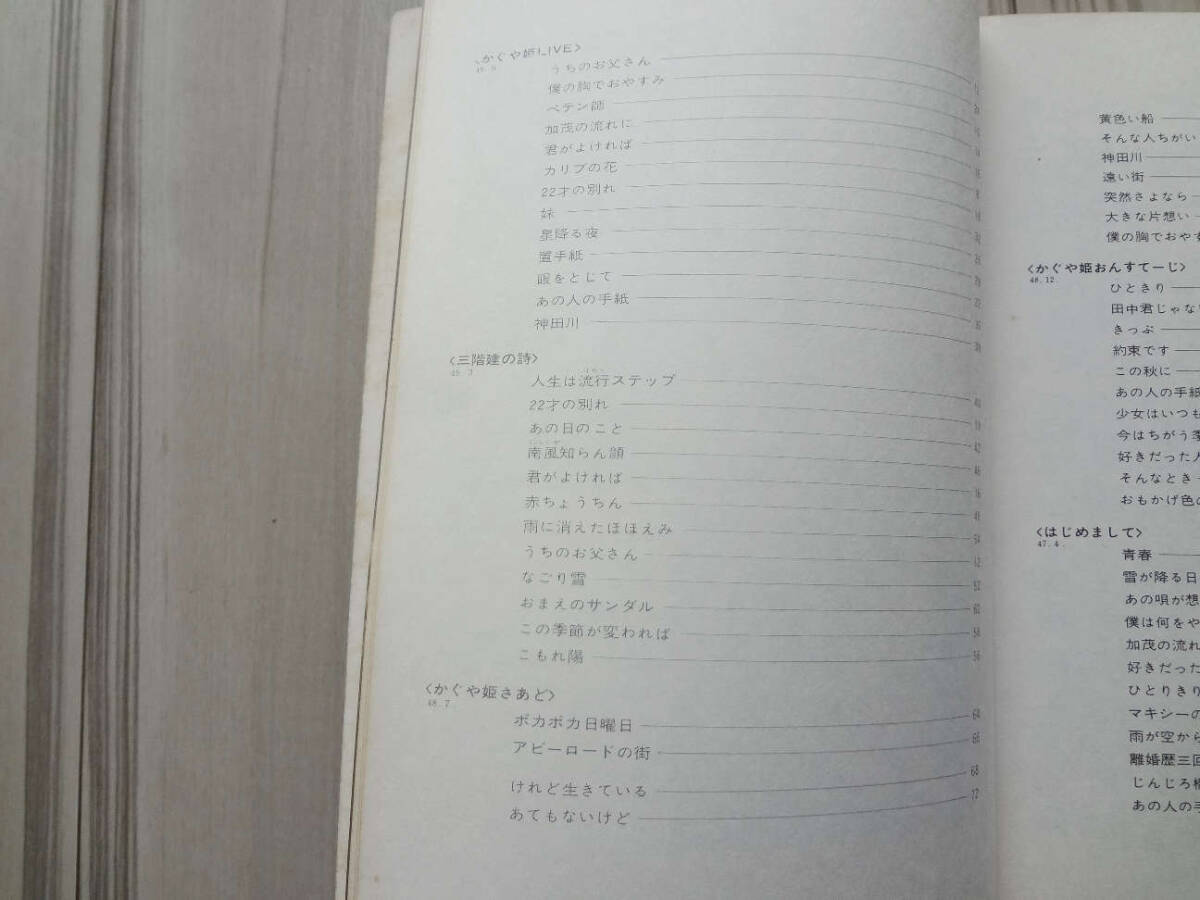 〈かぐや姫LIVE〉
うちのお父さん
僕の胸でおやすみ
ペテン師
加茂の流れに
君がよければ
カリブの花
22才の別れ
妹
星降る夜
置手紙
眼をとじて
あの人の手紙
神田川
〈三階建の詩〉
人生は流行ステップ 40
22才の別れ
あの日のこと 42
南風知らん顔 46
君がよければ 16
赤ちょうちん
雨に消えたほほえみ 54
うちのお父さん 12
なごり雪 52
おまえのサンダル 60
この季節が変われば
こもれ陽 56
〈かぐや姫さあど〉
48.7.
ポカポカ日曜日 64
アビーロードの街 66
けれど生きている 68
あてもないけど 72
黄色い船
そんな人ちがい
神田川
遠い街
突然さよなら
大きな片想い
僕の胸でおやす
〈かぐや姫おんすてーじ〉
48.12.
ひときり
田中君じゃな
きっぷ
約束です
この秋に
あの人の手紙
少女はいつも
今はちがう季
好きだった人
そんなとき
おもかげ色の
〈はじめまして〉
47.4.
青春
雪が降る日
あの唄が想
僕は何をや
加茂の流れ
好きだった
ひとりきり
マキシーの
雨が空から
離婚歴三回
じんじろ
あの人の手